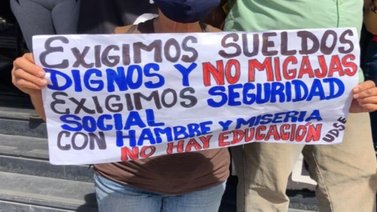 EXIGIMOS SUELDOS
DIGNOS Y NO MIGAJAS
EXIGIMOS SEGURIDAD
SOCIAL
CON HAMBRE Y MISERIA
NO HAY EDUCACION UDSE